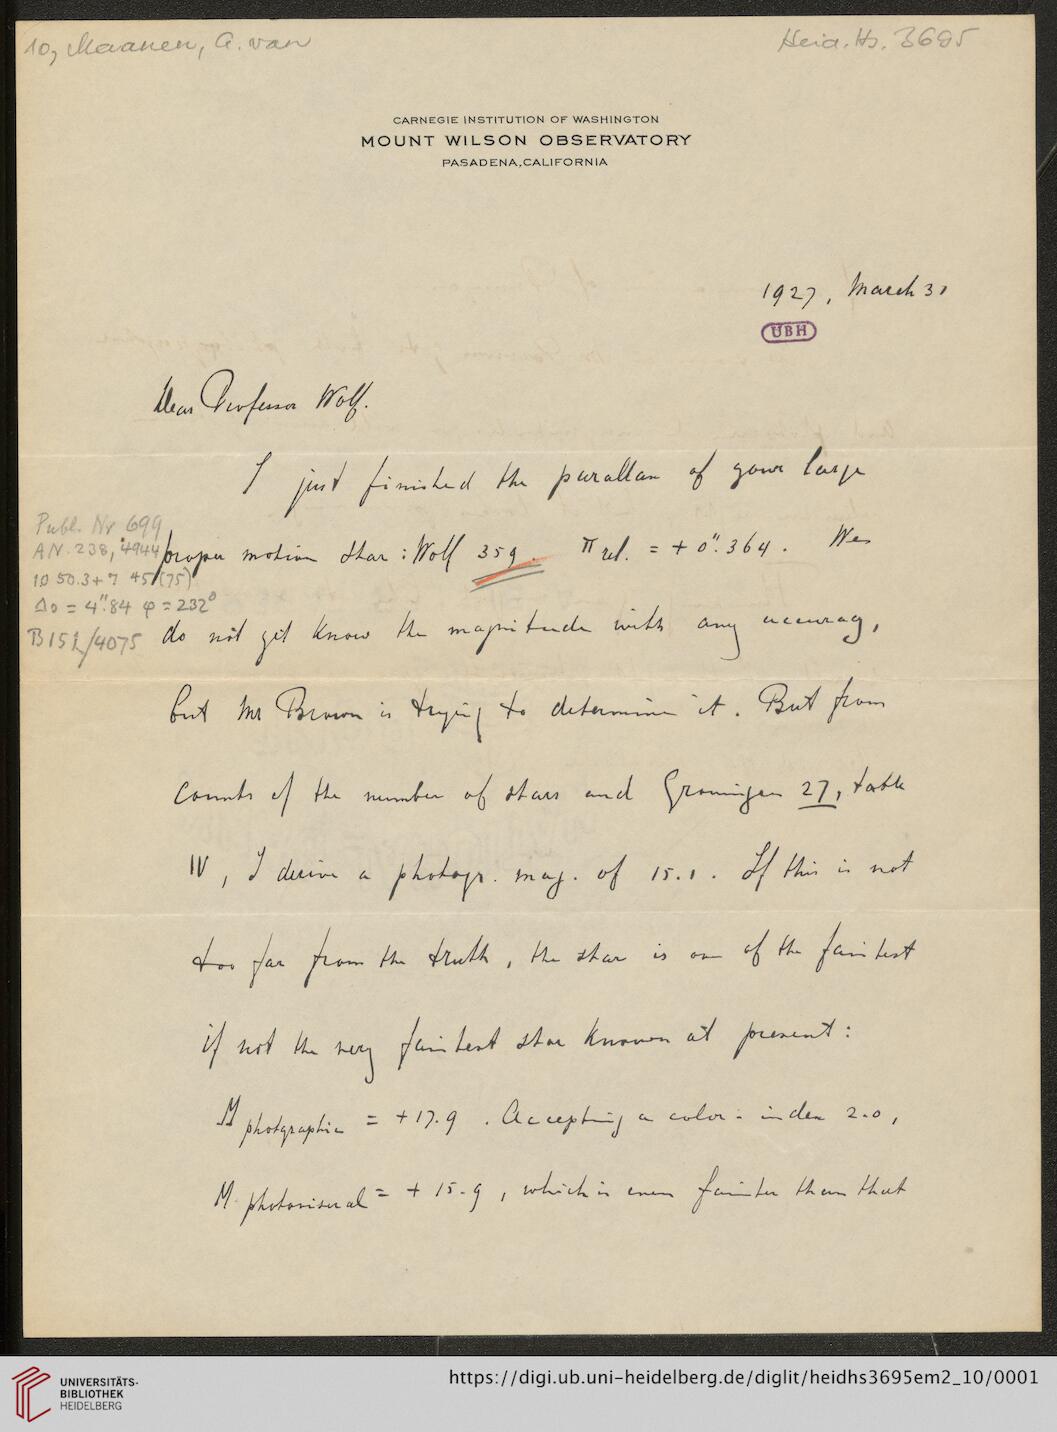 10, Maanen, A. van
Heid. Hs. 3695
CARNEGIE INSTITUTION OF WASHINGTON
MOUNT WILSON OBSERVATORY
PASADENA, CALIFORNIA
1927, March 30
UBH
Dear Professor Wolf.
I just finished the parallax of your large
Publ. Nr 699
A N. 238, 4944
10 50.3 + 7 45 (75)
Δσ = 4".84 φ = 232°
B 152/4075
proper motion star: Wolf 359. π rel. = + 0".364. We
do not yet know the magnitude with any accuracy,
but Mr Brown is trying to determine it. But from
counts of the number of stars and Groningen 27, table
IV, I derive a photogr. mag. of 15.1. If this is not
too far from the truth, the star is one of the faintest
if not the very faintest star known at present:
M photographic = + 17.9. Accepting a color-index 2.0,
M photovisual = + 15.9, which is even fainter than that
UNIVERSITÄTS-
BIBLIOTHEK
HEIDELBERG
https://digi.ub.uni-heidelberg.de/diglit/heidhs3695em2_10/0001